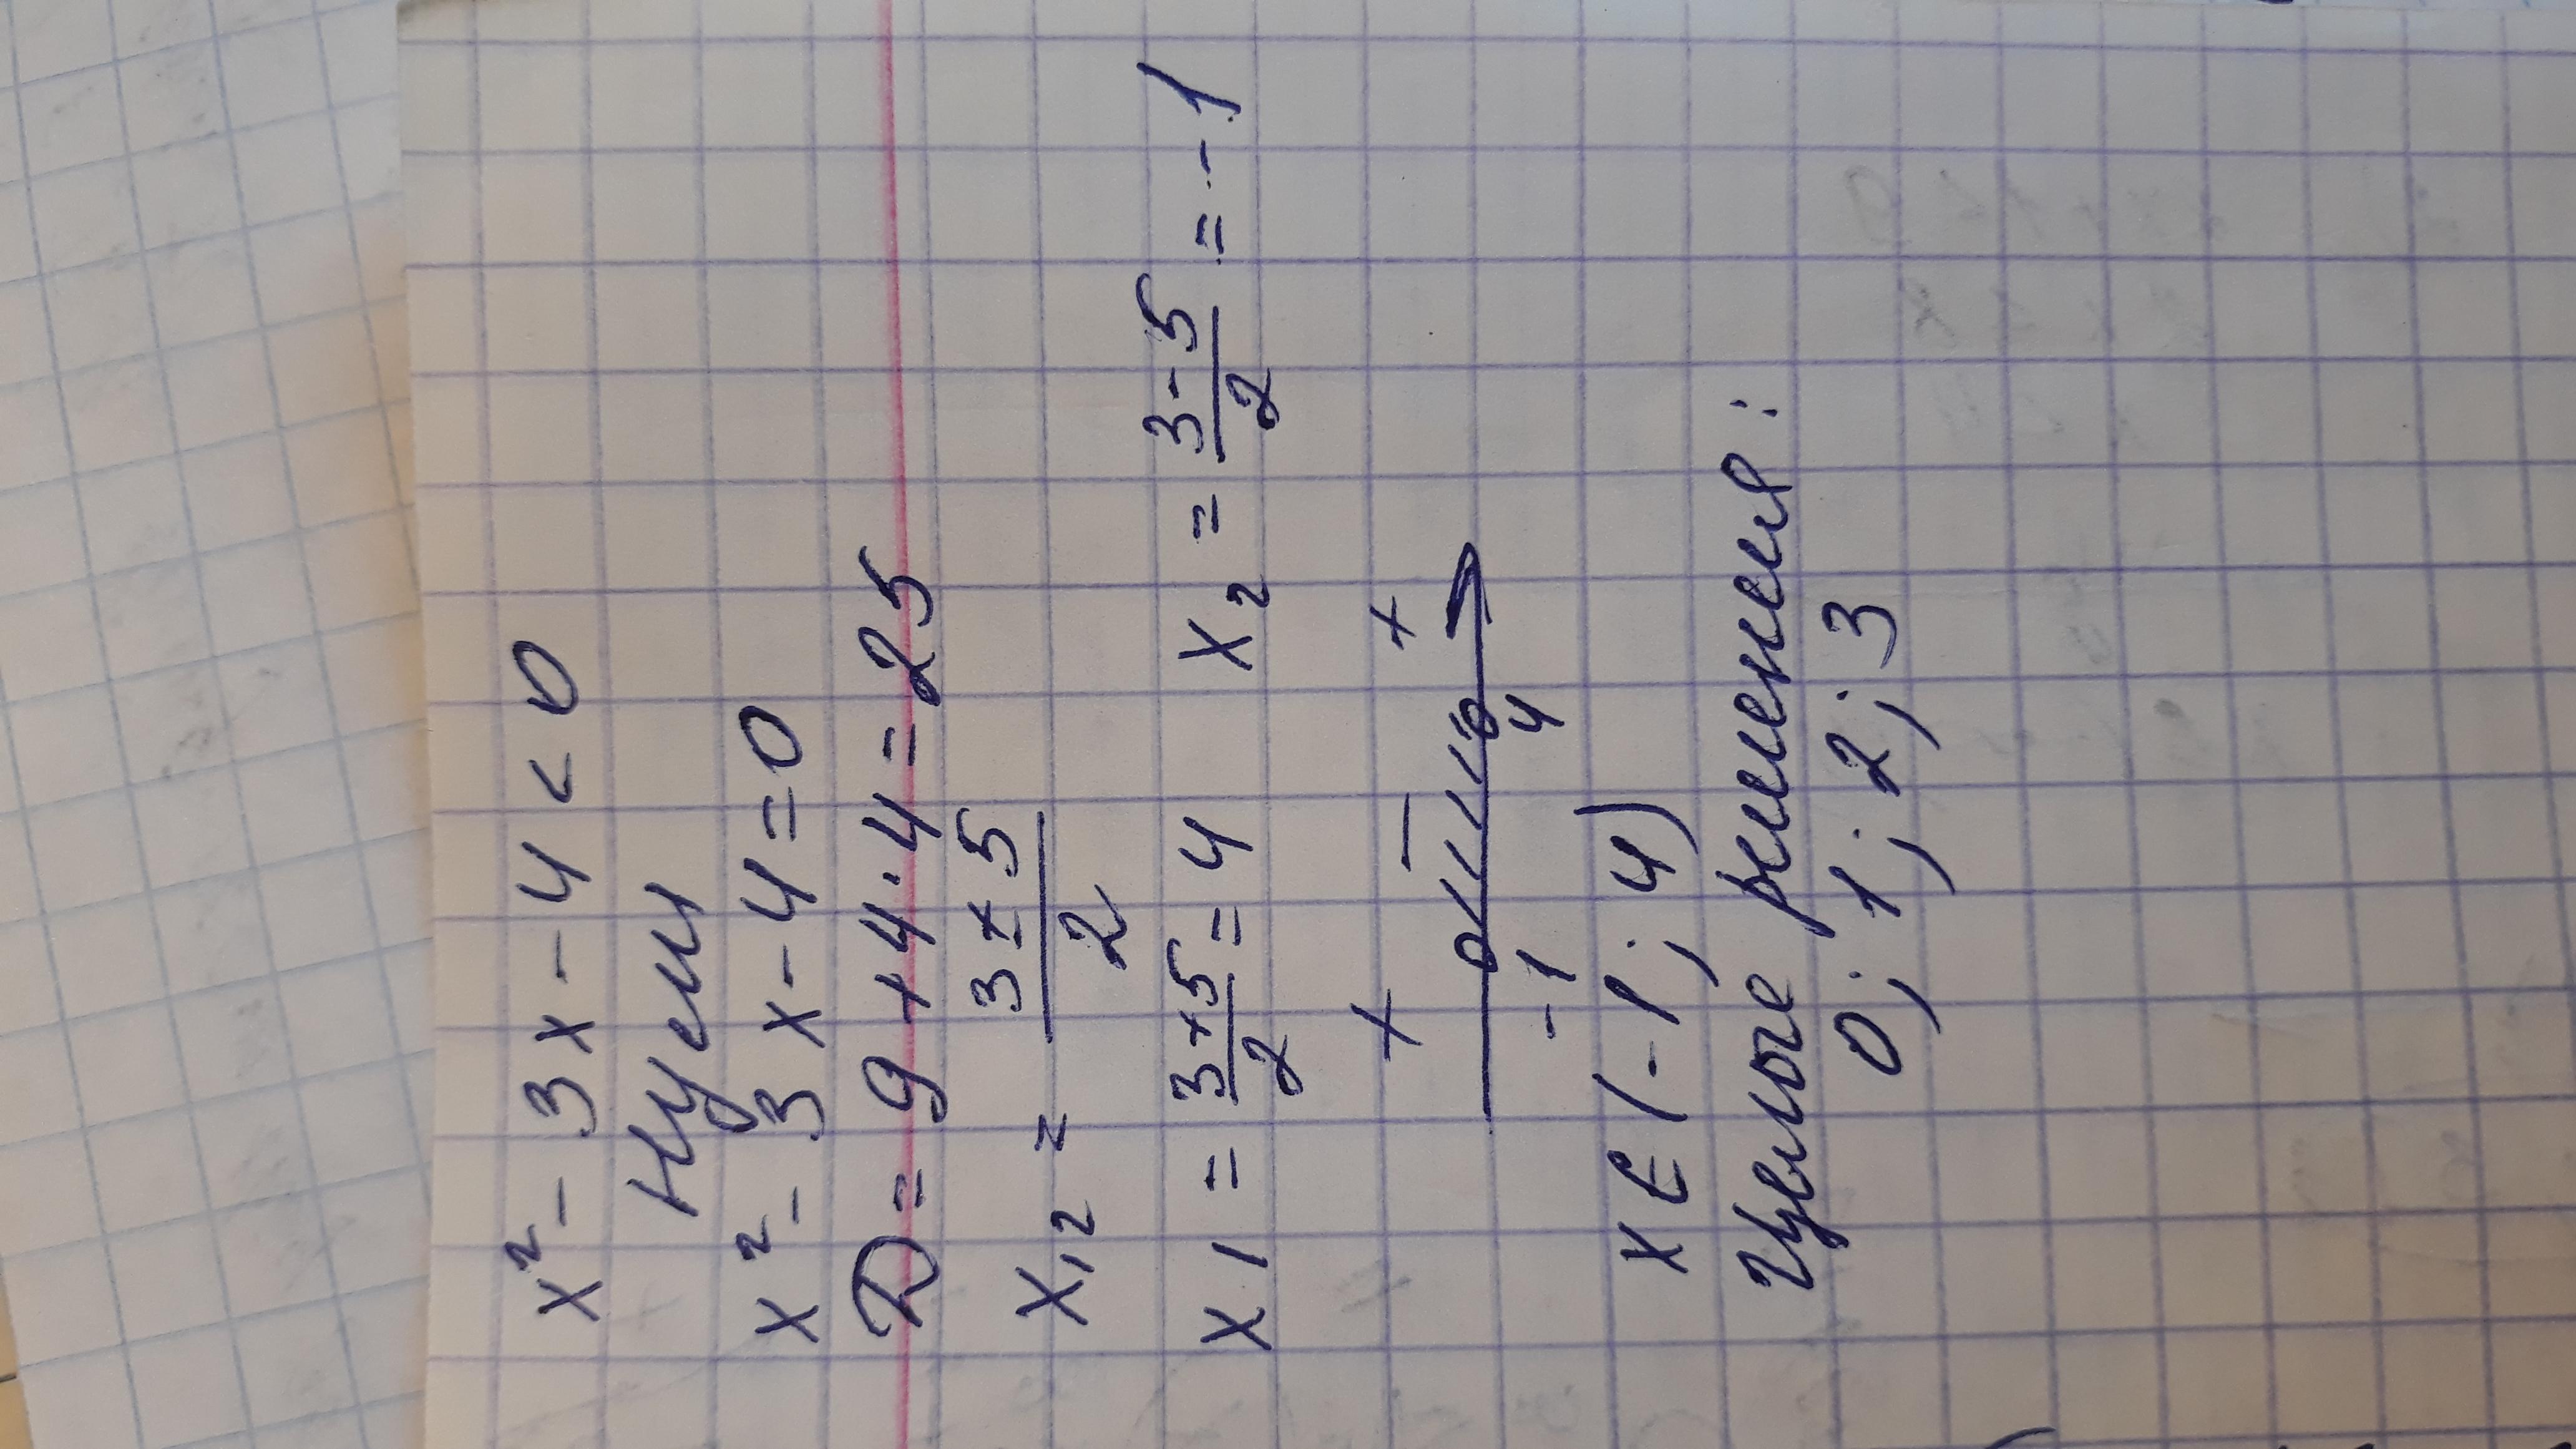 x² - 3x - 4 < 0
Нули
x² - 3x - 4 = 0
D = 9 + 4 · 4 = 25
x₁₂ = (3 ± 5)/2
x₁ = (3 + 5)/2 = 4 x₂ = (3 - 5)/2 = -1
+ - +
-1 4
x ∈ (-1; 4)
Целые решения:
0; 1; 2; 3